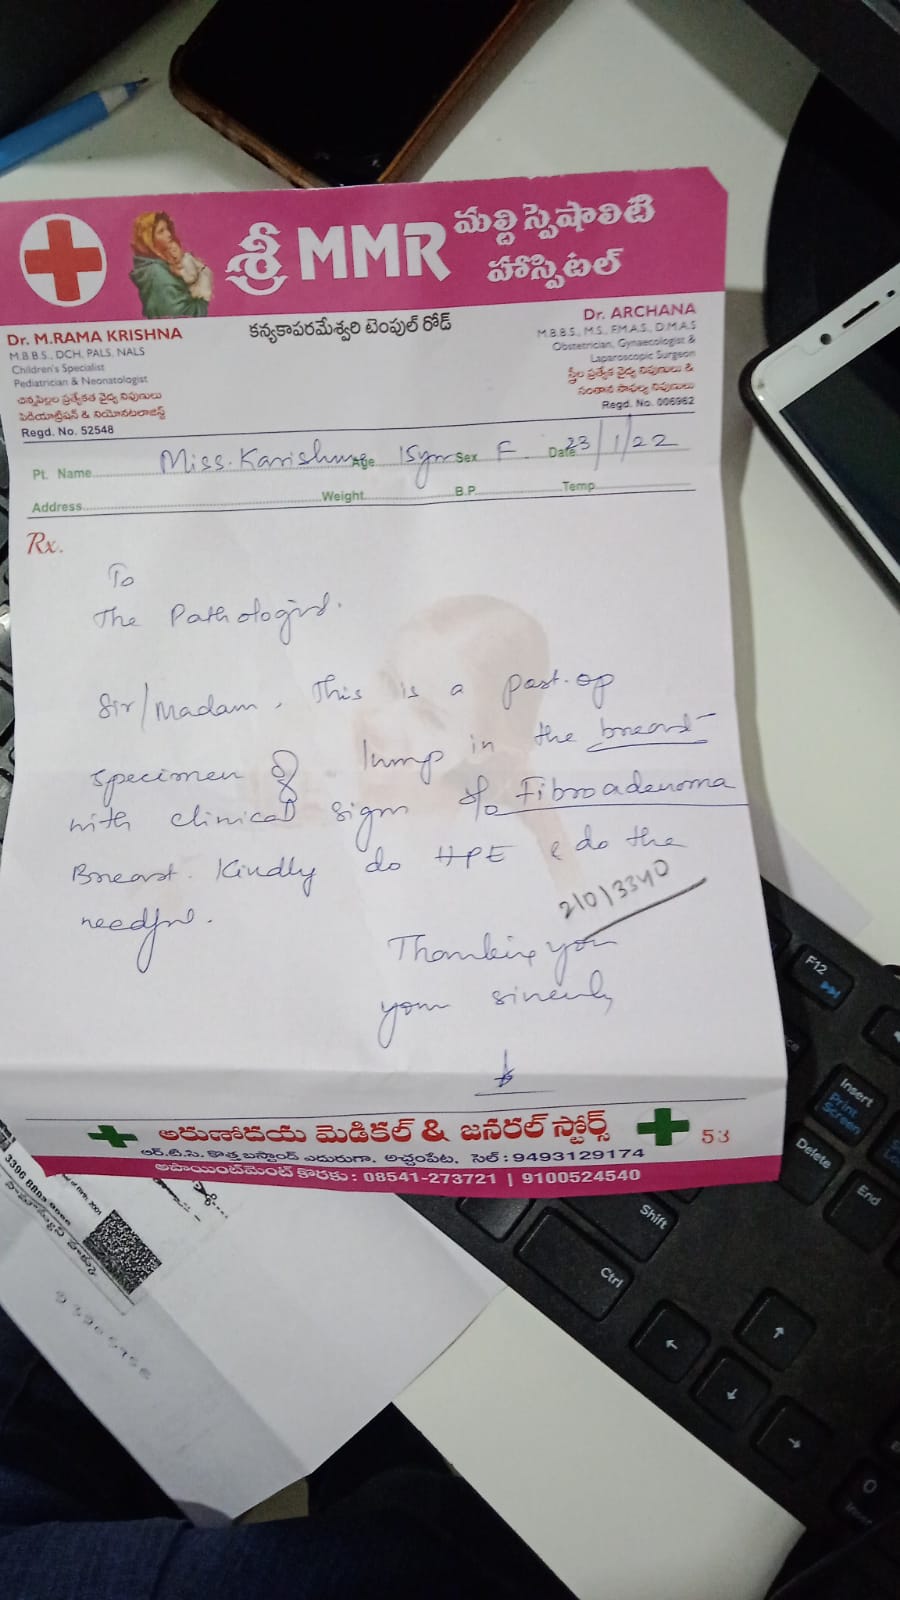 శ్రీ MMR మల్టి స్పెషాలిటి
హాస్పిటల్
కన్యకాపరమేశ్వరి టెంపుల్ రోడ్
Dr. M.RAMA KRISHNA
M.B.B.S., DCH, PALS, NALS
Children's Specialist
Pediatrician & Neonatologist
చిన్నపిల్లల ప్రత్యేకత వైద్య నిపుణులు
పిడియాట్రిషన్ & నియోనటలాజిస్ట్
Regd. No. 52548
Dr. ARCHANA
M.B.B.S., M.S., F.M.A.S., D.M.A.S
Obstetrician, Gynaecologist &
Laparoscopic Surgeon
స్త్రీల ప్రత్యేక వైద్య నిపుణులు &
సంతాన సాఫల్య నిపుణులు
Regd. No. 006962
Pt. Name Miss. Karishma Age 15yrs Sex F. Date 23/1/22
Address Weight B.P. Temp
Rx.
To
The Pathologist.
Sir/Madam, This is a post-op
specimen of lump in the breast
with clinical sign s/o Fibroadenoma
Breast. Kindly do HPE & do the
needful.
21013340
Thanking you
your sincerely
అరుణోదయ మెడికల్ & జనరల్ స్టోర్స్
53
ఆర్.టి.సి. కొత్త బస్టాండ్ ఎదురుగా, అచ్చంపేట, సెల్ : 9493129174
అపాయింట్‌మెంట్ కొరకు : 08541-273721 | 9100524540
F12
Insert
Print
Screen
Delete
End
Shift
Ctrl